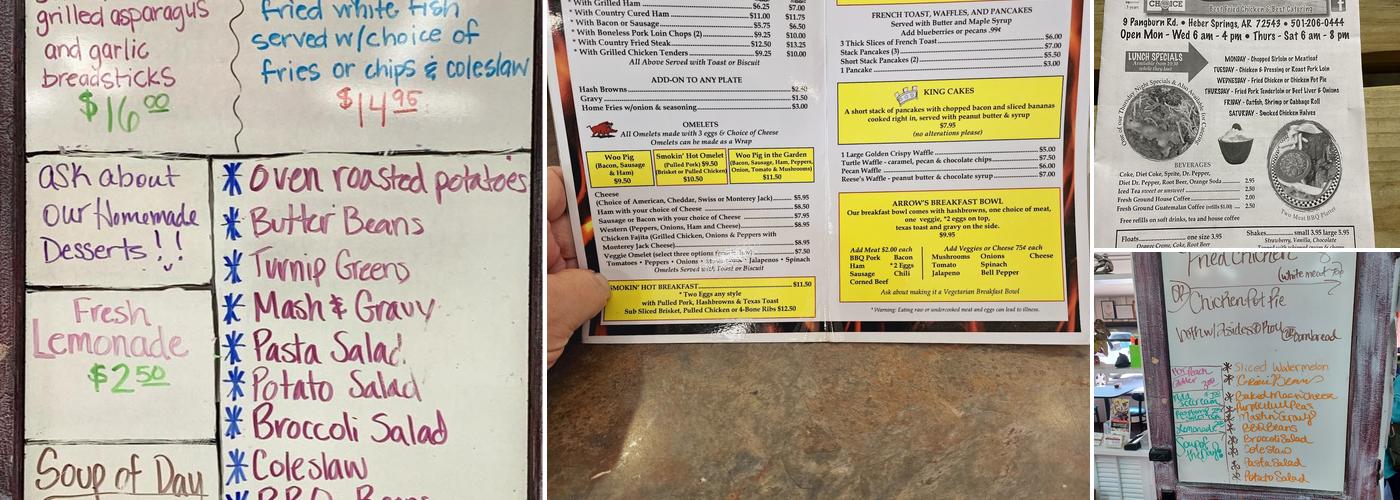 grilled asparagus
and garlic
breadsticks
$16.00
fried white fish
served w/choice of
fries or chips & coleslaw
$14.95
ask about
our Homemade
Desserts!!
Fresh
Lemonade
$2.50
Soup of Day
* Oven roasted potatoes
* Butter Beans
* Turnip Greens
* Mash & Gravy
* Pasta Salad
* Potato Salad
* Broccoli Salad
* Coleslaw
* BBQ Beans
* With Grilled Ham $6.25 $7.00
* With Country Cured Ham $11.00 $11.75
* With Bacon or Sausage $5.75 $6.50
* With Boneless Pork Loin Chops (2) $9.25 $10.00
* With Country Fried Steak $12.50 $13.25
* With Grilled Chicken Tenders $9.25 $10.00
All Above Served with Toast or Biscuit
ADD-ON TO ANY PLATE
Hash Browns $2.50
Gravy $1.50
Home Fries w/onion & seasoning $3.00
OMELETS
All Omelets made with 3 eggs & Choice of Cheese
Omelets can be made as a Wrap
Woo Pig
(Bacon, Sausage
& Ham)
$9.50
Smokin' Hot Omelet
(Pulled Pork) $9.50
(Brisket or Pulled Chicken)
$10.50
Woo Pig in the Garden
(Bacon, Sausage, Ham, Peppers,
Onion, Tomato & Mushrooms)
$11.50
Cheese
(Choice of American, Cheddar, Swiss or Monterey Jack) $5.95
Ham with your choice of Cheese $8.50
Sausage or Bacon with your choice of Cheese $7.95
Western (Peppers, Onions, Ham and Cheese) $8.95
Chicken Fajita (Grilled Chicken, Onions & Peppers with
Monterey Jack Cheese) $8.95
Veggie Omelet (select three options $7.50
Tomatoes • Peppers • Onions • Jalapenos • Spinach
Omelets Served with Toast or Biscuit
SMOKIN' HOT BREAKFAST $11.50
* Two Eggs any style
with Pulled Pork, Hashbrowns & Texas Toast
Sub Sliced Brisket, Pulled Chicken or 4-Bone Ribs $12.50
FRENCH TOAST, WAFFLES, AND PANCAKES
Served with Butter and Maple Syrup
Add blueberries or pecans .99¢
3 Thick Slices of French Toast $6.00
Stack Pancakes (3) $7.00
Short Stack Pancakes (2) $5.50
1 Pancake $3.00
KING CAKES
A short stack of pancakes with chopped bacon and sliced bananas
cooked right in, served with peanut butter & syrup
$7.95
(no alterations please)
1 Large Golden Crispy Waffle $5.00
Turtle Waffle - caramel, pecan & chocolate chips $7.50
Pecan Waffle $6.00
Reese's Waffle - peanut butter & chocolate syrup $7.00
ARROW'S BREAKFAST BOWL
Our breakfast bowl comes with hashbrowns, one choice of meat,
one veggie, *2 eggs on top,
texas toast and gravy on the side.
$9.95
Add Meat $2.00 each
BBQ Pork Bacon
Ham *2 Eggs
Sausage Chili
Corned Beef
Add Veggies or Cheese 75¢ each
Mushrooms Onions Cheese
Tomato Spinach
Jalapeno Bell Pepper
Ask about making it a Vegetarian Breakfast Bowl
*Warning: Eating raw or undercooked meat and eggs can lead to illness.
CHOICE
Best Fried Chicken & Best Catering
9 Pangburn Rd. • Heber Springs, AR 72543 • 501-206-0444
Open Mon - Wed 6 am - 4 pm • Thurs - Sat 6 am - 8 pm
LUNCH SPECIALS
MONDAY - Chopped Sirloin or Meatloaf
TUESDAY - Chicken & Dressing or Roast Pork Loin
WEDNESDAY - Fried Chicken or Chicken Pot Pie
THURSDAY - Fried Pork Tenderloin or Beef Liver & Onions
FRIDAY - Catfish, Shrimp or Cabbage Roll
SATURDAY - Smoked Chicken Halves
BEVERAGES
Coke, Diet Coke, Sprite, Dr. Pepper,
Diet Dr. Pepper, Root Beer, Orange Soda 2.95
Iced Tea sweet or unsweet 2.50
Fresh Ground House Coffee 2.00
Fresh Ground Guatemalan Coffee (refills $1.00) 2.50
Free refills on soft drinks, tea and house coffee
Two Meat BBQ Platter
Floats one size 3.95
Orange Creme, Coke, Root Beer
Shakes small 3.95 large 5.95
Strawberry, Vanilla, Chocolate
Fried Chicken
(white meat
OR
Chicken Pot Pie
with w/2 sides & Roll or Cornbread
Lemonade
Soup of
the Day
* Sliced Watermelon
* Green Beans
* Baked Mac n Cheese
* Purple Hull Peas
* Mash n Gravy
* BBQ Beans
* Broccoli Salad
* Coleslaw
* Pasta Salad
* Potato Salad